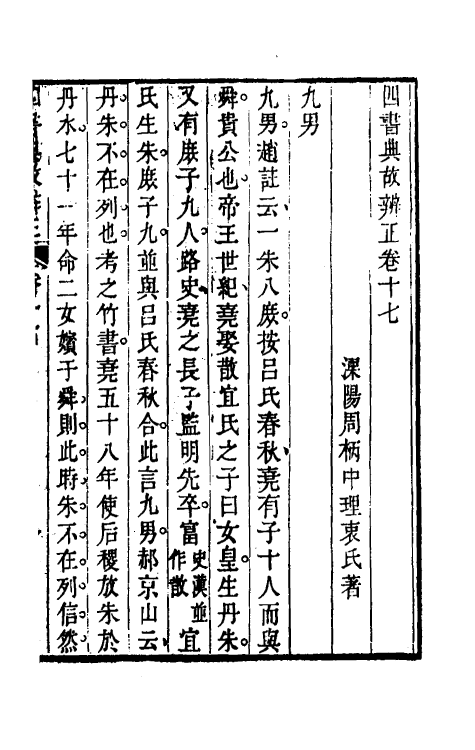 四書典故辨正卷十七
溧陽周柄中理衷氏著
九男
九男趙註云一朱八庶按呂氏春秋堯有子十人而與
舜貴公也帝王世紀堯娶散宜氏之子曰女皇生丹朱
又有庶子九人路史堯之長子監明先卒富史漢並作散宜
氏生朱庶子九並與呂氏春秋合此言九男郝京山云
丹朱不在列也考之竹書堯五十八年使后稷放朱於
丹水七十一年命二女嬪于舜則此時朱不在列信然